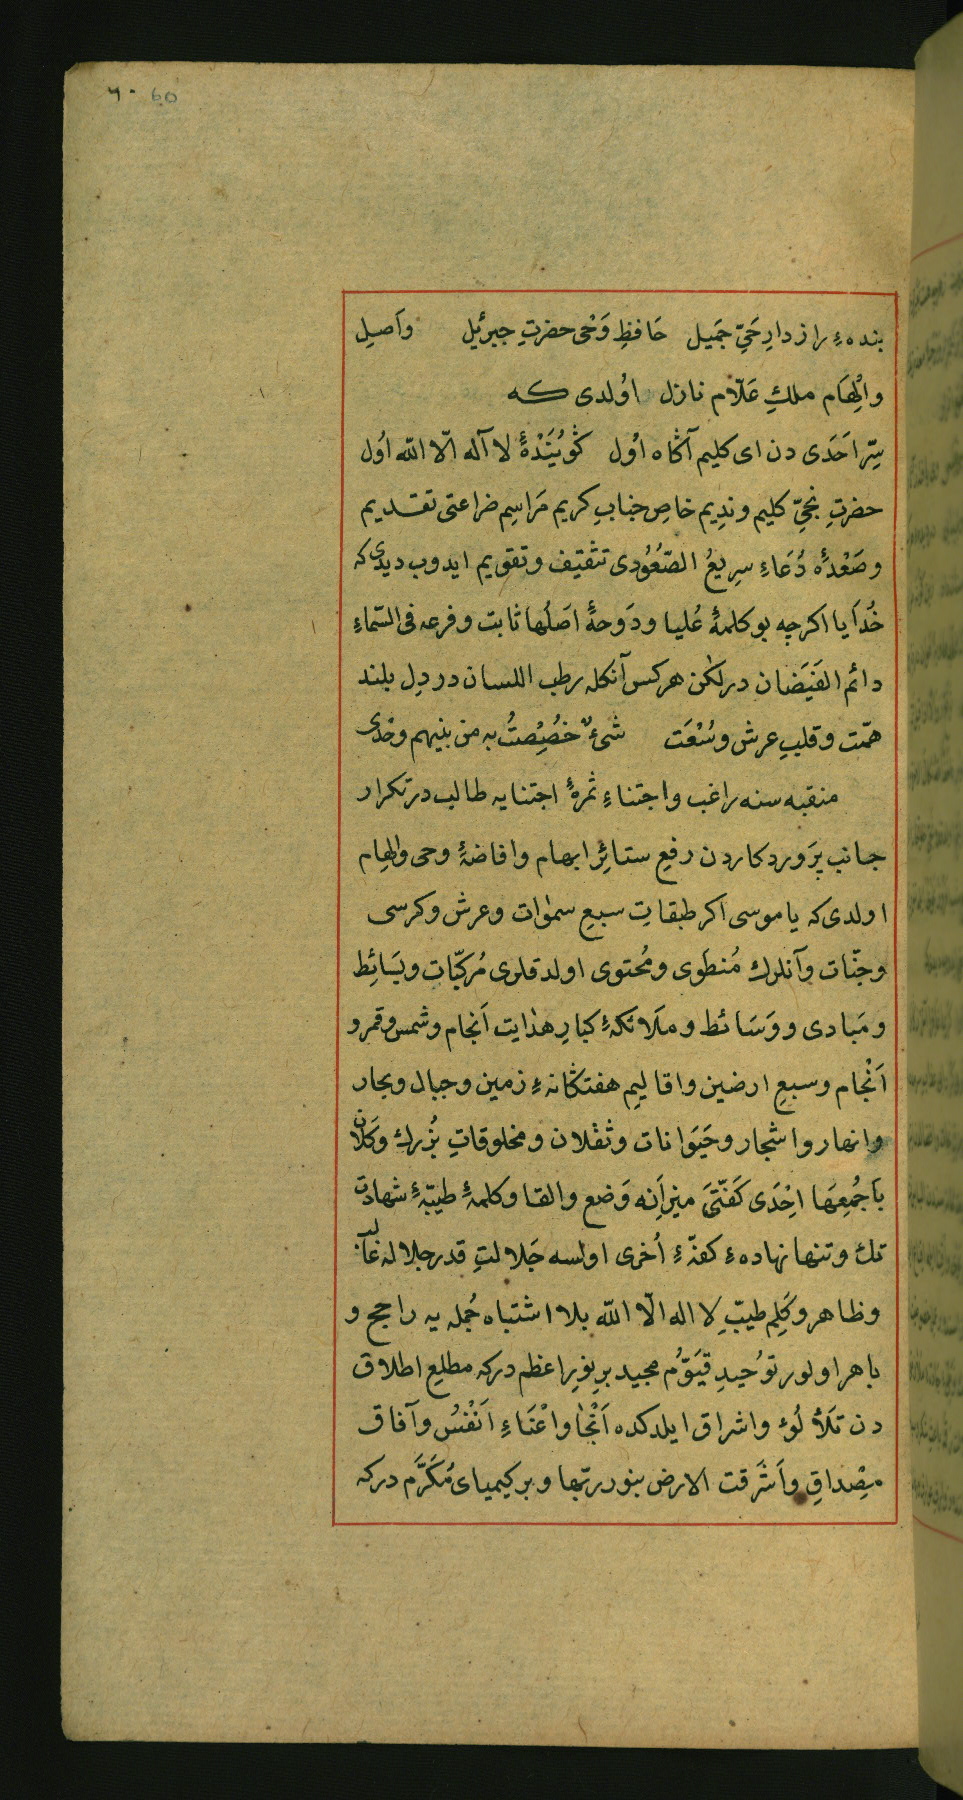 ٦٠ 60
بندهٔ راز دارِ حَیِّ جَمیل حَافظِ وَحْی حضرتِ جبرئیل وآصیلِ
والْهَام ملكِ عَلّام نازل اوُلدی که
سِرّ احَدَی دن ای کلیم آگاه اوُل گوُیَنْدهٔ لا آله الّا اللّٰه اوُل
حضرتِ نجیِّ کلیم وندِیم خاصِ جنابِ کریم مَراسِم ضراعتی تقدیم
وصَعْدهٔ دُعَاءِ سرِیعُ الصّعُوُدی تثقیف وتقویم ایدوب دیدی که
خُدآیا اکرچه بو کلمهٔ عُلیا ودَوحهٔ اصَلُها ثابت وفرعه فی السّماءِ
دائم الفَیَضان در لٰکن هرکس آنکله رطب اللسان در دِل بلند
همّت وقلبِ عرش وسُعْتَ شیءٌ خُصِصْتُ به من بنیهم وخْدی
منقبه سنه راغب واجتناءِ ثمرهٔ اجتنایه طالب در تکرار
جانب پرَوردکاردن رفعِ ستائرِ ابهام وافاضهٔ وحی والهام
اولدی که یا موسی اکر طبقاتِ سبعِ سمٰوات وعرش وکرسی
وجنّات وآنلرك مُنطَوی ومُحتوی اولدقلری مُرکبّات وبَسائِط
ومَبادی ووَسَائط وملَائکهٔ کبارِ هذایت اَنجام وشمس وقمر و
اَنْجام وسبعِ ارضین واقالیمِ هفتگانهٔ زمین وجبال وبحار
وانهار واشجار وحَیَوانات وثقلان ومخلوقاتِ بُزرك وکَلان
بَاجُمِعِهَا اِحْدَی کَفّتَیَ میزاَنه وَضع والقا وکلمهٔ طیبّهٔ شهادت
تك وتنها نهادهٔ کفهّٔ اُخری اولسه جَلالتِ قدر جلاله غالب
وظاهر وکَلِم طیبِّ لا اله الّا اللّٰه بلا اشتباه جُمله یه راجح و
باهر اولور توُحیدِ قیَوّمُ مجید بر نیرِ اعظم در که مطلعِ اطلاق
دن تلَأ لُؤ واشراق ایلدکده اَنْجٰا واعْنَاءِ اَنْفسُ وآفاق
مصِْداقِ وأشَرقت الارض بنور ربّها وبر کیمیای مُکَرَّم در که